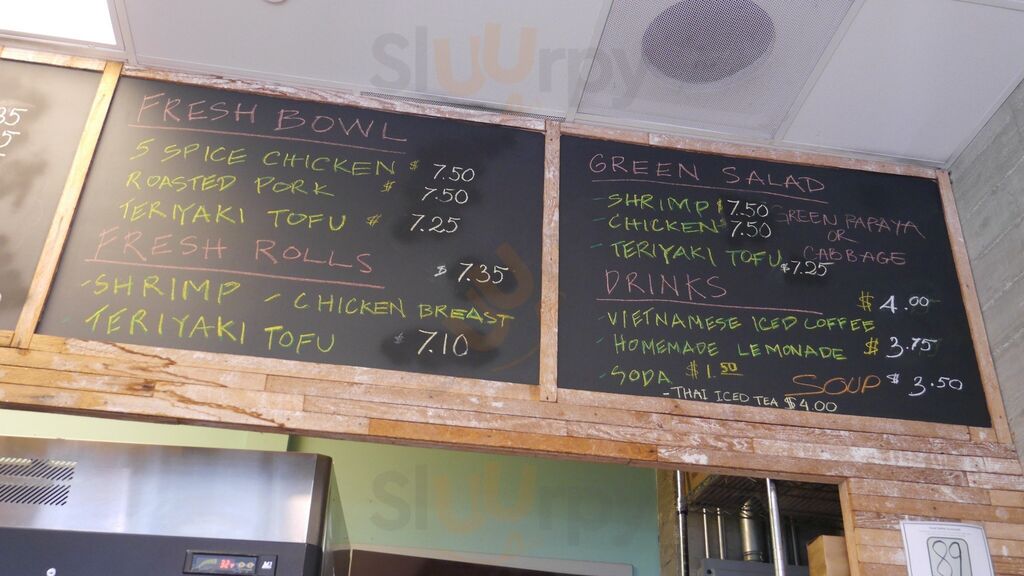 Sluurpy
35
5
FRESH BOWL
5 SPICE CHICKEN $ 7.50
ROASTED PORK $ 7.50
TERIYAKI TOFU $ 7.25
FRESH ROLLS
$ 7.35
- SHRIMP - CHICKEN BREAST
- TERIYAKI TOFU $ 7.10
GREEN SALAD
- SHRIMP $ 7.50
- CHICKEN $ 7.50
- TERIYAKI TOFU $ 7.25
GREEN PAPAYA
OR
CABBAGE
DRINKS
$ 4.00
- VIETNAMESE ICED COFFEE
- HOMEMADE LEMONADE $ 3.75
- SODA $ 1.50
SOUP $ 3.50
- THAI ICED TEA $4.00
Sluurpy
89